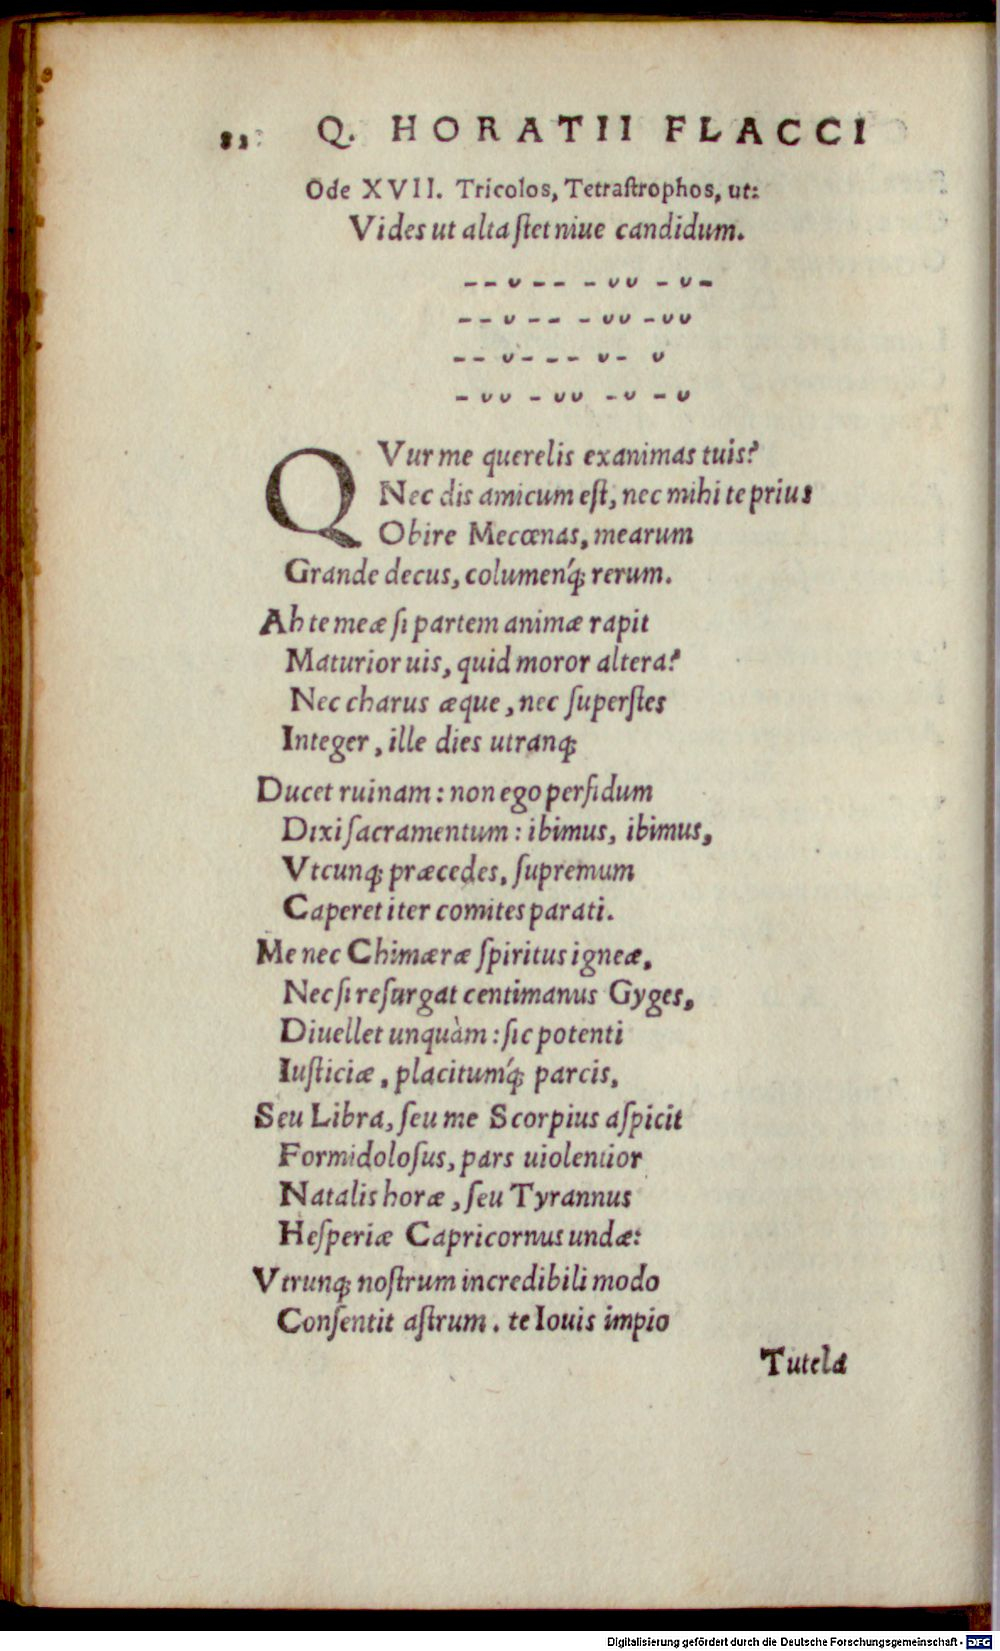 82 Q. HORATII FLACCI
Ode XVII. Tricolos, Tetraſtrophos, ut:
Vides ut alta ſtet niue candidum.
– – ᴗ – – – ᴗᴗ – ᴗ –
– – ᴗ – – – ᴗᴗ – ᴗᴗ
– – ᴗ – – – ᴗ – ᴗ
– ᴗᴗ – ᴗᴗ – ᴗ – ᴗ
QVur me querelis exanimas tuis?
Nec dis amicum eſt, nec mihi te prius
Obire Mecœnas, mearum
Grande decus, columenq́; rerum.
Ah te meæ ſi partem animæ rapit
Maturior uis, quid moror altera?
Nec charus æque, nec ſuperſtes
Integer, ille dies utranq;
Ducet ruinam: non ego perfidum
Dixi ſacramentum: ibimus, ibimus,
Vtcunq; præcedes, ſupremum
Caperet iter comites parati.
Me nec Chimæræ ſpiritus igneæ,
Nec ſi reſurgat centimanus Gyges,
Diuellet unquàm: ſic potenti
Iuſticiæ, placitumq́; parcis,
Seu Libra, ſeu me Scorpius aſpicit
Formidoloſus, pars uiolentior
Natalis horæ, ſeu Tyrannus
Heſperiæ Capricornus undæ:
Vtrunq; noſtrum incredibili modo
Conſentit aſtrum. te Iouis impio
Tutela
Digitalisierung gefördert durch die Deutsche Forschungsgemeinschaft - DFG